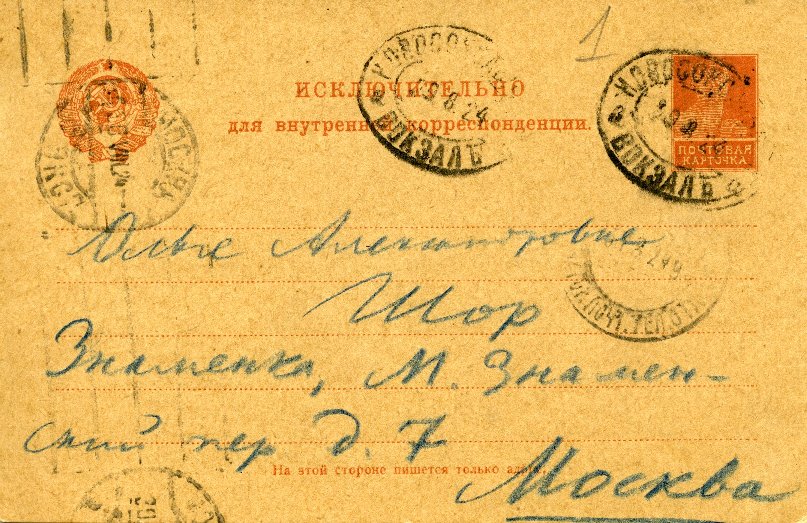 1
ИСКЛЮЧИТЕЛЬНО
для внутренней корреспонденции.
ПОЧТОВАЯ
КАРТОЧКА
13 8 24
ВОКЗАЛЪ
ВОКЗАЛЪ
МОСКВА
Ольге Александровне
Шор
Знаменка, М. Знамен-
ский пер д. 7
Москва
На этой стороне пишется только адрес.